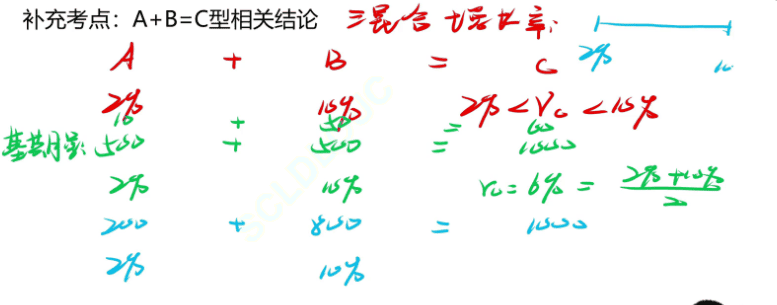 补充考点：A+B=C型相关结论 三混合增长率：
A + B = C 2% 10
2% 10% 2%<Vc<10%
10 + 50 = 60
基期量：500 + 500 = 1000
2% 10% rc=6%=(2%+10%)/2
200 + 800 = 1000
2% 10%